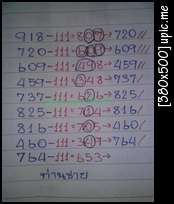 918-111=807→720//
720-111=609→609///
609-111=498→459//
459-111=348→737/
737-111=626→825/
825-111=714→816/
816-111=705→460/
460-111=349→764/
764-111=653→
ท่านชาย
[380x500] upic.me